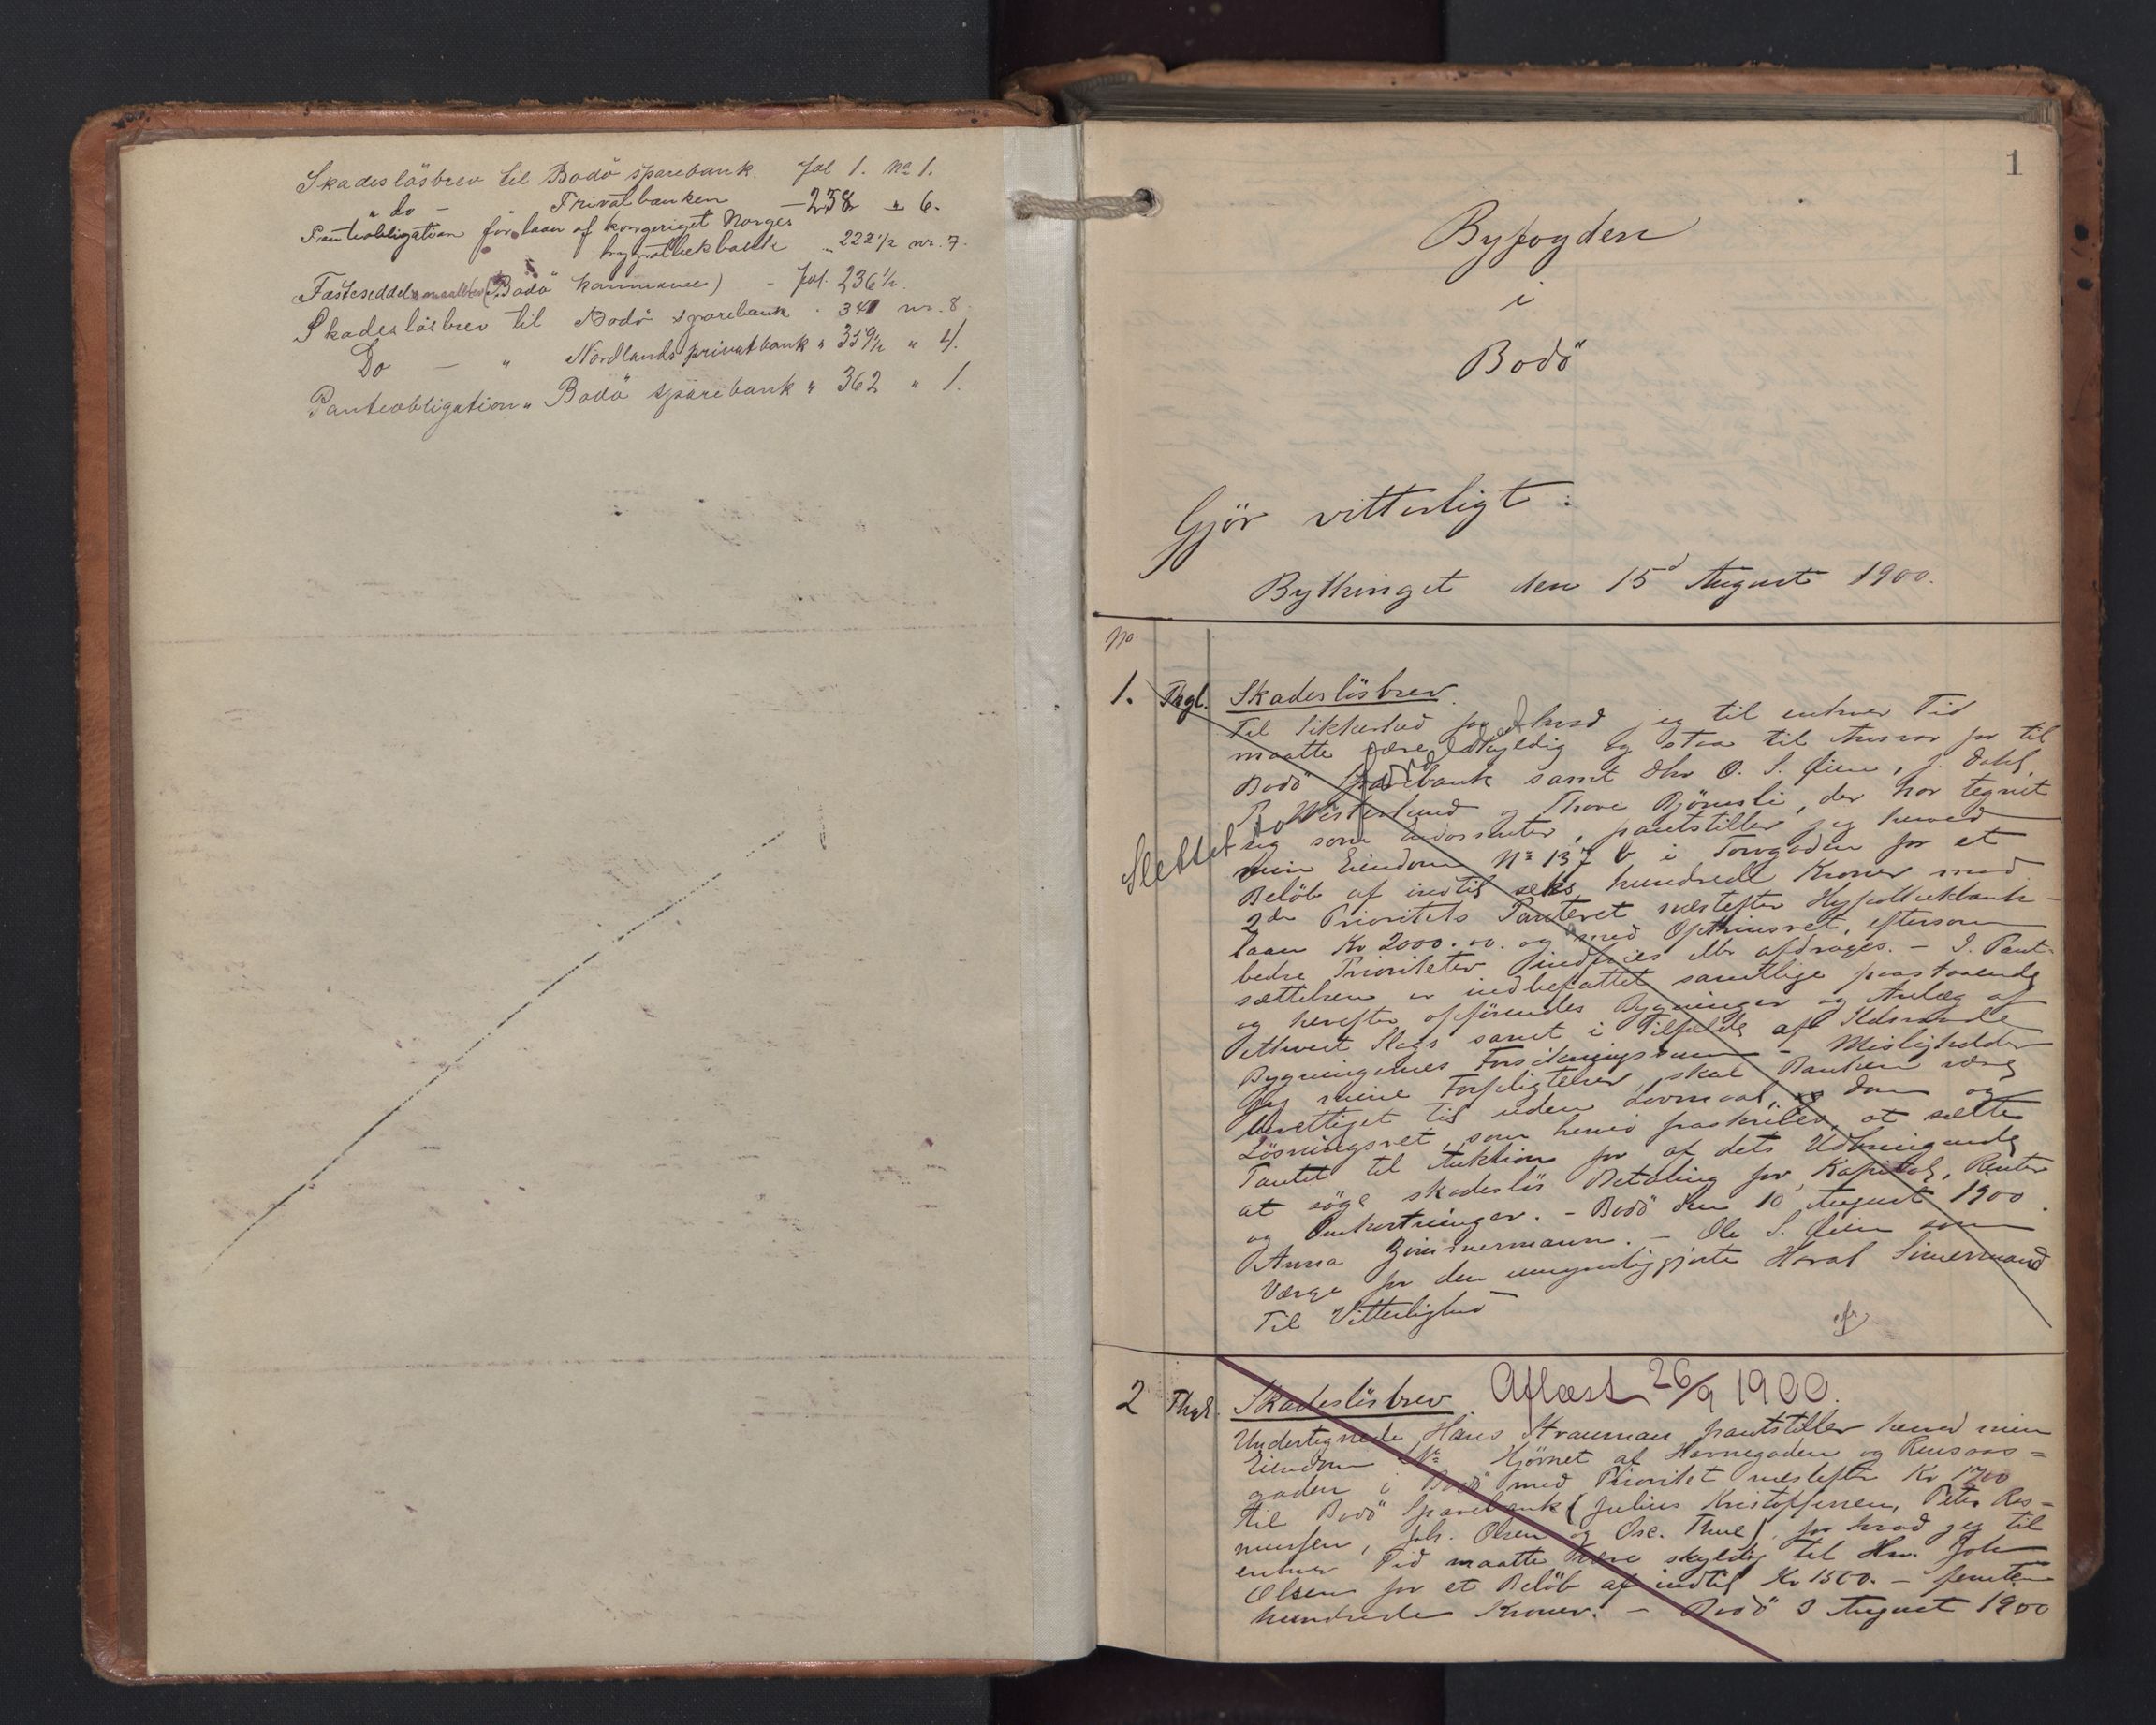 Skadesløsbrev til Bodø sparebank. Fol 1. No 1.
" do - Privatbanken - 238 " 6.
Panteobligation for laan af kongeriget Norges
hypothekbank " 222 1/2 nr. 7.
Fæsteseddel (Bodø kommune) - Fol. 236 1/2
Skadesløsbrev til Bodø sparebank " 340 nr. 8
Do - " Nordlands privatbank " 359 1/2 " 4.
Panteobligation " Bodø sparebank " 362 " 1.
1
Byfogden
i
Bodö
Gjör vitterligt:
Bythinget den 15d August 1900.
No.
1. Thgl. Skadeslösbrev.
Til Sikkerhed for hvad jeg til enhver Tid
maatte være skyldig og staa til Ansvar for til
Bodö Sparebank samt Dhr O. S. Øien, J. Dahl,
P. Westerlund og Thore Björnsli, der har tegnet
sig som Endossenter, pantstiller jeg herved
Slettet
min Eiendom No 137 b i Torvgaden for et
Belöb af indtil seks hundrede Kroner med
2den Prioritets Panteret næstefter Hypothekbank-
laan Kr 2000.00. og med Oprinsret, eftersom
bedre Prioriteter indfries eller afdrages. - I Pant-
sættelsen er indbefattet samtlige paastaaende
og herefter opförendes Bygninger og Anlæg af
ethvert Slags samt i Tilfælde af Ildsvaade
Bygningernes Forsikringssum - Misligholder
jeg mine Forpligtelser, skal Banken være
berettiget til uden Lovmaal, Dom og
Løsningsret, som herved fraskrives, at sætte
Pantet til Auktion for af dets Udbringende
at søge skadeslös Betaling for Kapital, Renter
og Omkostninger. - Bodö den 10 August 1900.
Anna Zimmermann. - Ole S. Øien som
Værge for den umyndiggjorte Haral Simermand
Til Vitterlighed
2 Thgl. Skadeslösbrev. Aflæst 26/9 1900.
Undertegnede Hans Strauman pantstiller herved min
Eiendom No Hjörnet af Havnegaden og Rensaas=
gaden i Bodö med Prioritet næstefter Kr 1700
til Bodö Sparebank (Julius Kristoffersen, Peter Ras=
mussen, Joh. Olsen og Osc. Thue), for hvad jeg til
enhver Tid maatte være skyldig til Hr. Joh
Olsen for et Belöb af indtil Kr 1500. - femten
hundrede Kroner. - Bodö 3 August 1900